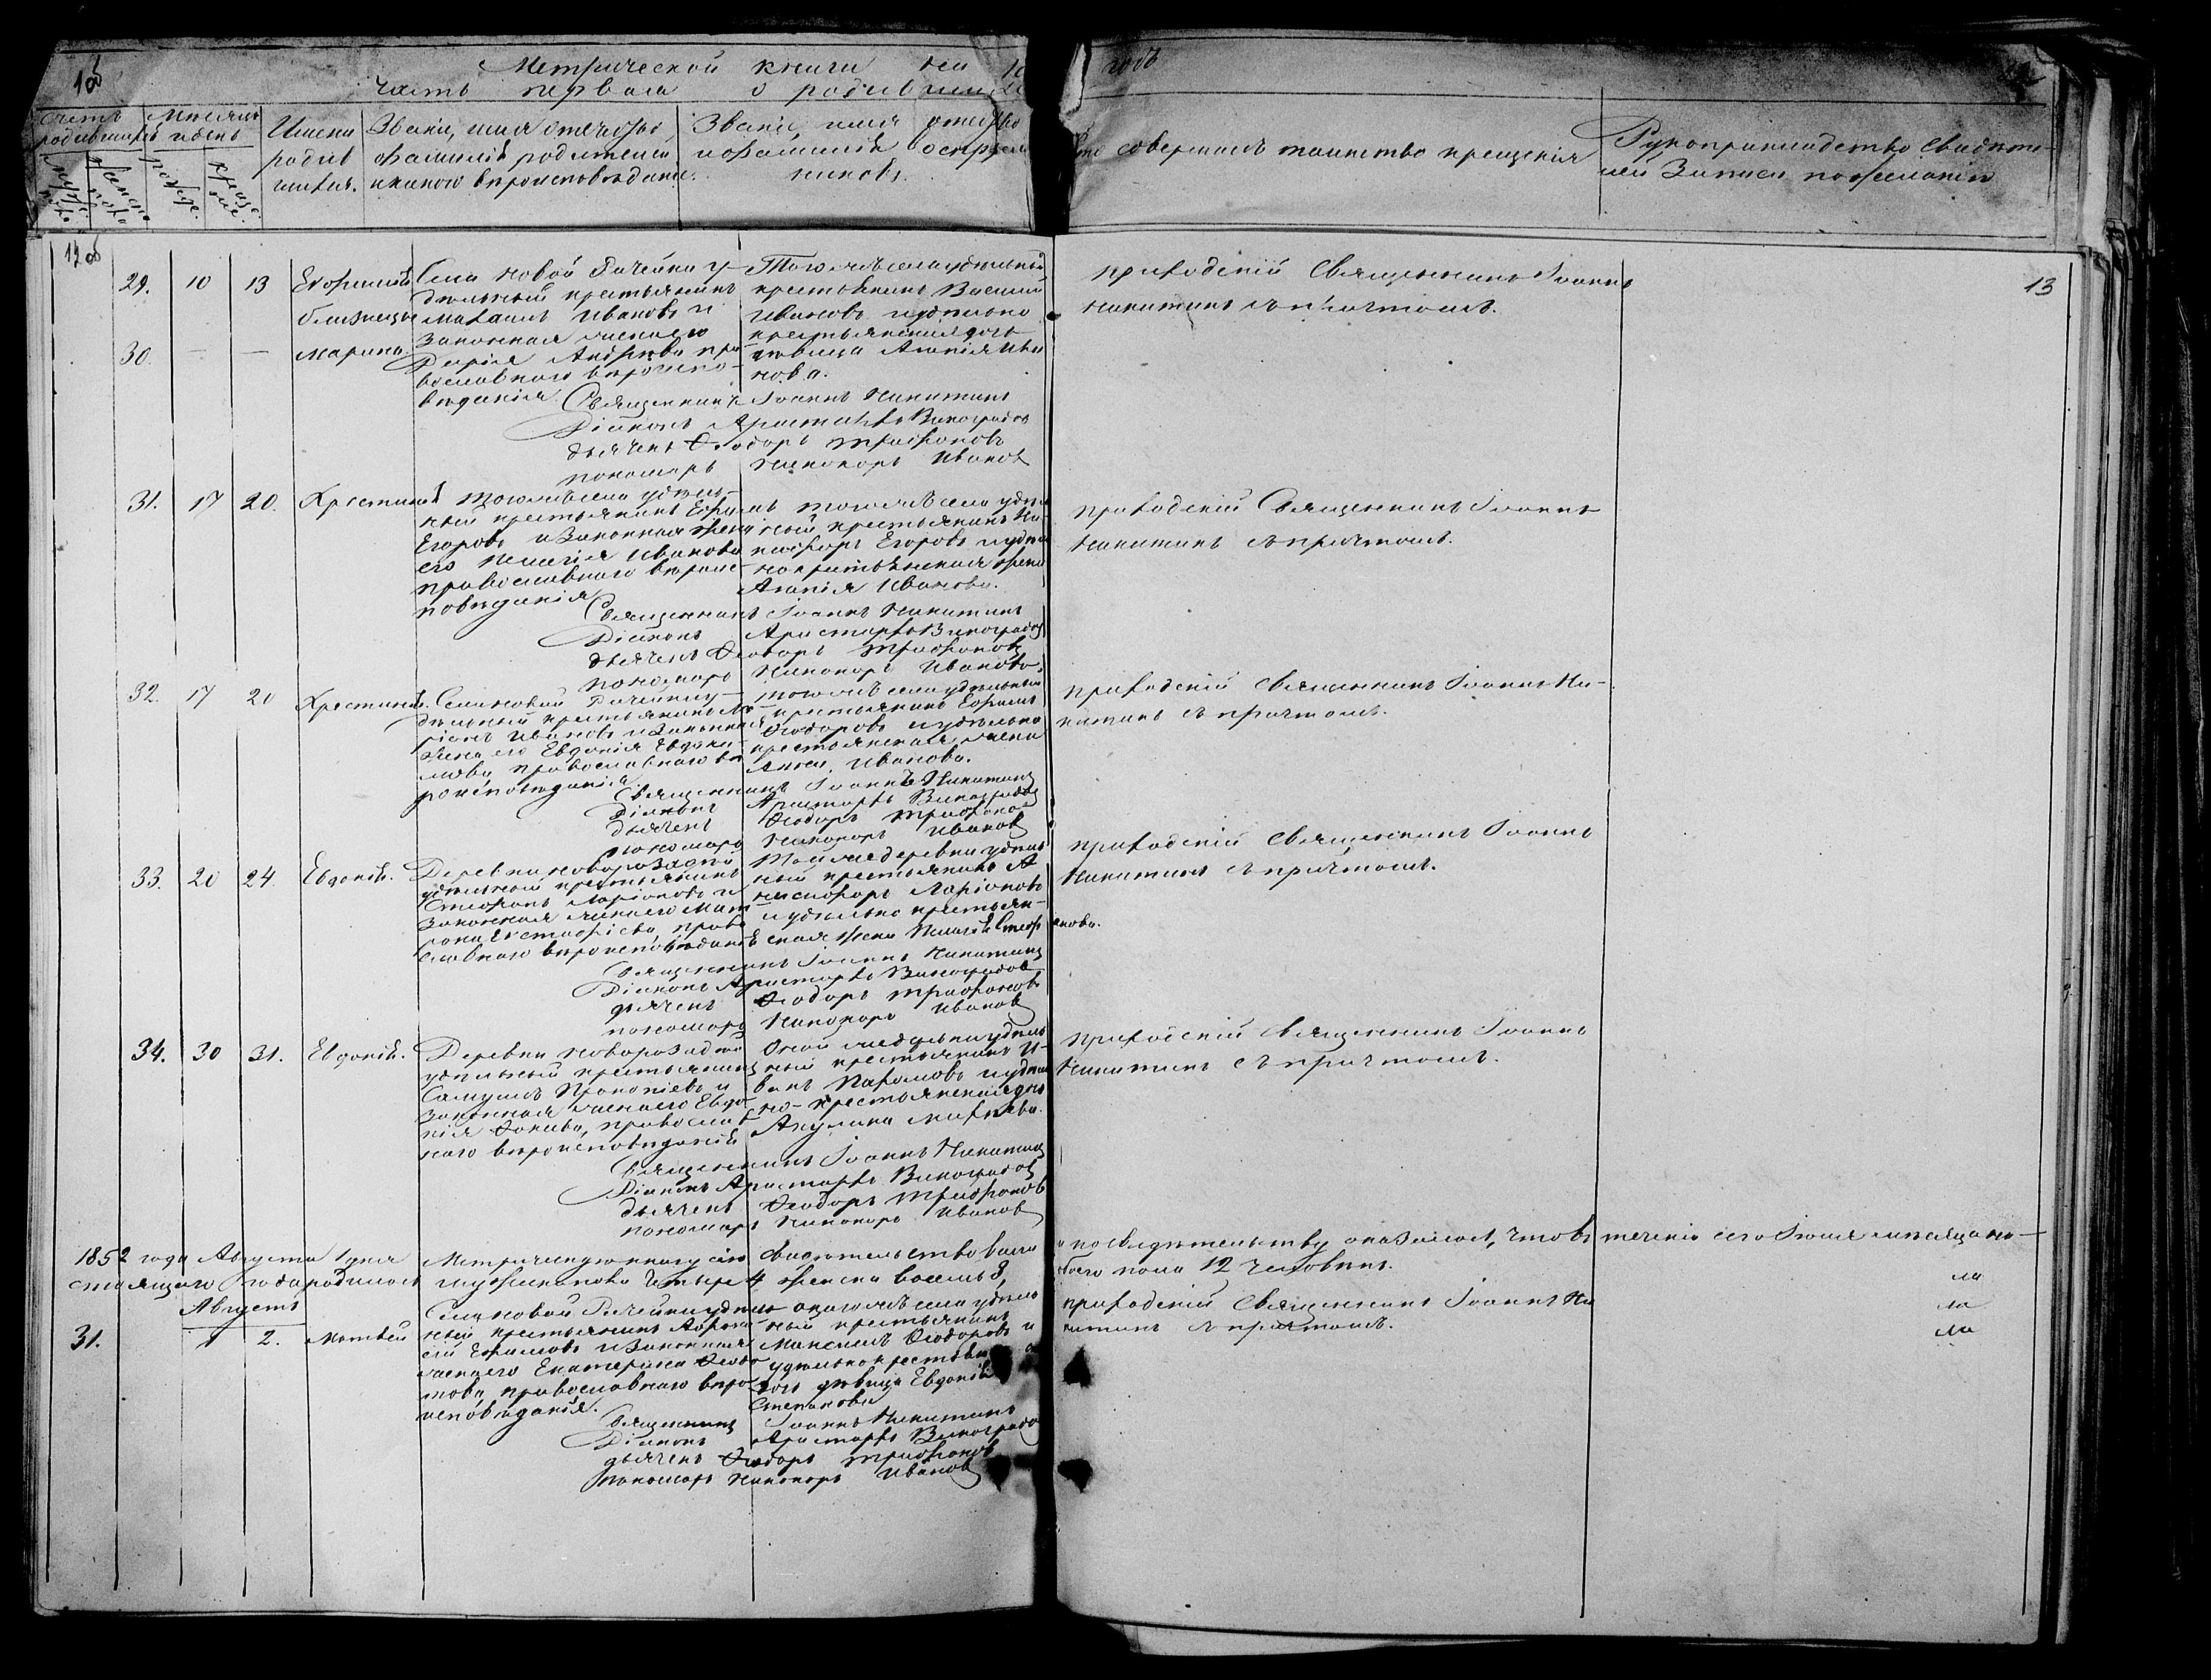 10об
Метрической книги на
годъ
часть первая о родившихся
Счетъ родившихся
Мѣсяцъ и день
Имена родившихся.
Званіе, имя отечество, фамилія родителей, и какого вѣроисповѣданія.
Званіе, имя отечество и фамилія воспріемниковъ.
Кто совершалъ таинство крещенія
Рукоприкладство свидѣтелей записи по желанію
мужеска
женска
рожде.
креще ние.
12об
13
29. 10 13 Евфимія
близнецы
30. — — Марина
Села Новой Рачейки у-
дѣльный крестьянинъ
Михаилъ Ивановъ и
законная жена его
Дарія Андреева пра-
вославнаго вѣроиспо-
вѣданія
Того жъ села удѣльный
крестьянинъ Василій
Ивановъ и удѣльно
крестьянская дочь
дѣвица Агапія Ива
нова.
приходскій Священникъ Іоаннъ
Никитинъ съ причтомъ.
Священникъ Іоаннъ Никитинъ
Діаконъ Аристархъ Виноградов
дьячекъ Ѳеодоръ Трифоновъ
пономарь Никоноръ Иванов
31. 17 20. Христина
Того жъ села удѣль-
ный крестьянинъ Ефимъ
Егоровъ и законная жена
его Пелагія Иванова
православнаго вѣроис-
повѣданія
того жъ села удѣль
ный крестьянинъ Ни-
кифоръ Егоровъ и удѣль
но крестьянская жена
Агапія Иванова.
приходскій Священникъ Іоаннъ
Никитинъ съ причтомъ.
Священникъ Іоаннъ Никитинъ
Діаконъ Аристархъ Виноградов
дьячекъ Ѳеодоръ Трифоновъ
пономарь Никоноръ Ивановъ
32. 17 20 Христина.
Села Новой Рачейки у-
дѣльный крестьянинъ Ла
ріонъ Ивановъ и законная
жена его Евдокія Евдоки-
мова, православнаго вѣ
роисповѣданія
того жъ села удѣльный
крестьянинъ Ефимъ
Ѳеодоровъ и удѣльно
крестьянская жена
Анна Иванова.
приходскій священникъ Іоаннъ Ни-
китинъ съ причтомъ.
Священникъ Іоаннъ Никитинъ
Діаконъ Аристархъ Виноградов
дьячекъ Ѳеодоръ Трифонов
пономарь Никоноръ Иванов
33. 20 24. Евдокія.
Деревни Новорозасной
удѣльный крестьянинъ
Стефанъ Ларіоновъ и
законная жена его Мат
рона Евстафіева, право
славнаго вѣроисповѣданія
Той же деревни удѣль
ный крестьянинъ А
никифоръ Ларіоновъ
и удѣльно крестьян-
ская жена Пелагія Стеф анова.
приходскій Священникъ Іоаннъ
Никитинъ съ причтомъ.
Священникъ Іоаннъ Никитинъ
Діаконъ Аристархъ Виноградов
дьячекъ Ѳеодоръ Трифоновъ
пономарь Никоноръ Иванов
34. 30 31. Евдокія.
удѣльный крестьянинъ
Самуилъ Прокопіевъ и
законная жена его Евдо-
кія Фокива, православ
наго вѣроисповѣданія
Оной же деревни удѣль
ный крестьянинъ И-
ванъ Пахомовъ и удѣль
но-крестьянская дочь
Акулина Михѣева.
приходскій Священникъ Іоаннъ
Никитинъ съ причтомъ.
Священникъ Іоаннъ Никитинъ
Діаконъ Аристархъ Виноградов
дьячекъ Ѳеодоръ Трифоновъ
пономарь Никоноръ Иванов
1852 года Августа 1 дня Метрическую книгу сію свидѣтельствовали и по свидѣтельству оказалось, что въ теченіе сего Іюля мѣсяца на-
стоящаго года родилось мужескаго четыре 4 женска восемь 8, обоего пола 12 человѣкъ.
Августъ
31. 1 2. Матвей
Села Новой Рачейки удѣль
ный крестьянинъ
Ефимовъ и законная
жена его Екатерина
православнаго вѣро-
исповѣданія.
онаго жъ села удѣль
ный крестьянинъ
Максимъ Ѳеодоровъ и
удѣльно крестьян
дочь дѣвица Евдокія
Степанова
приходскій Священникъ Іоаннъ Ни
китинъ съ причтомъ.
Священникъ Іоаннъ Никитинъ
Діаконъ Аристархъ Виноградов
дьячекъ Ѳеодоръ Трифонов
пономарь Никоноръ Иванов